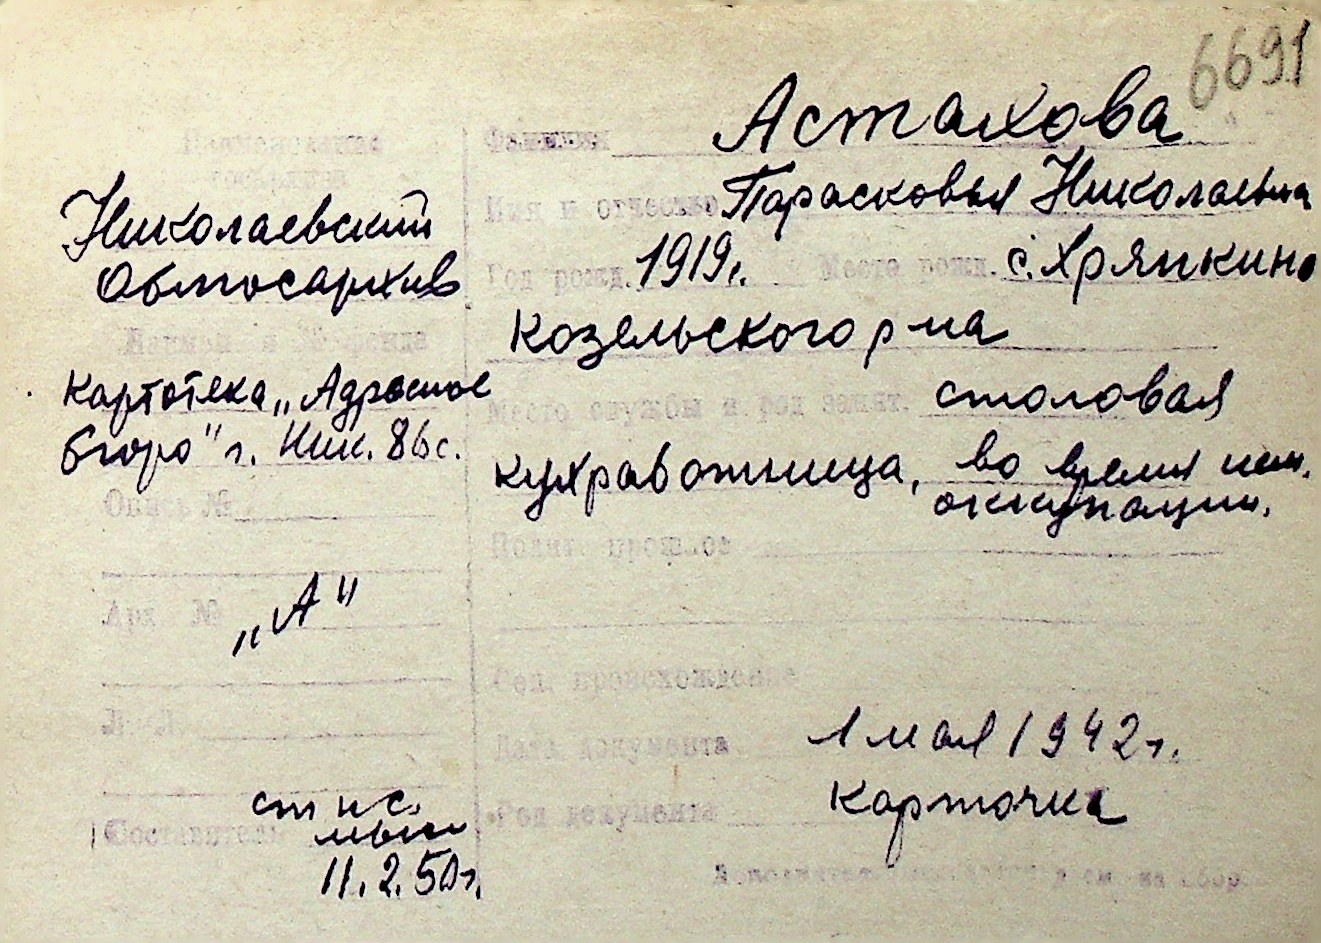 6691
Наименование
госархива
Николаевский
Облгосархив
фонда
Картотека „Адресное
бюро" г. Ник. 86с.
Опись №
Арх. №
„А"
Л. Л.
Составитель
11.2.50г.
Фамилия Астахова
Имя и отчество Парасковья Николаевна
Год рожд. 1919г. Место рожд. с. Хряпкино
Козельского р-на
Место службы и род занят. столовая
кухработница, во время нем.
оккупации.
Полит. прошлое
Соц. происхождение
Дата документа 1 мая 1942г.
Род документа карточка